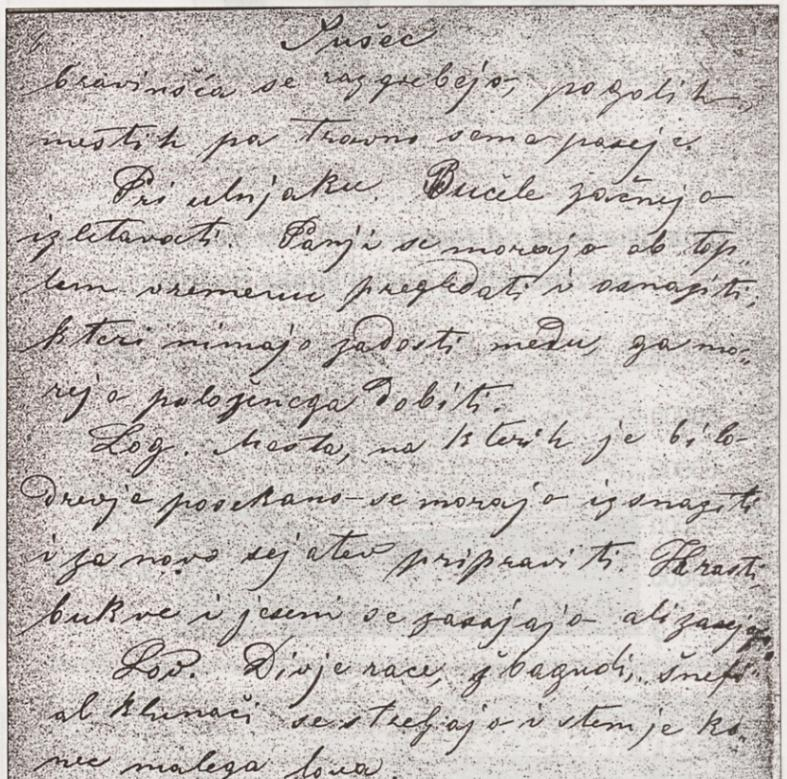 Sušec
bravinšča se razgrebejo, po golih
mestih pa travno seme poseje.
Pri ulnjaku. Bučele začnejo
izletavati. Panji se morajo ob top-
lem vremenu pregledati i osnažiti,
kteri nimajo zadosti medu, ga mo-
rejo položenega dobiti.
Log. Mesta, na kterih je bilo
drevje posekano se morajo izsnažiti
i za novo sejatev pripraviti. Hrasti,
bukve i jeseni se zasajajo ali zasejejo.
Lov. Divje race, šnefi
al kljunači se streljajo i s tem je ko-
nec malega lova.